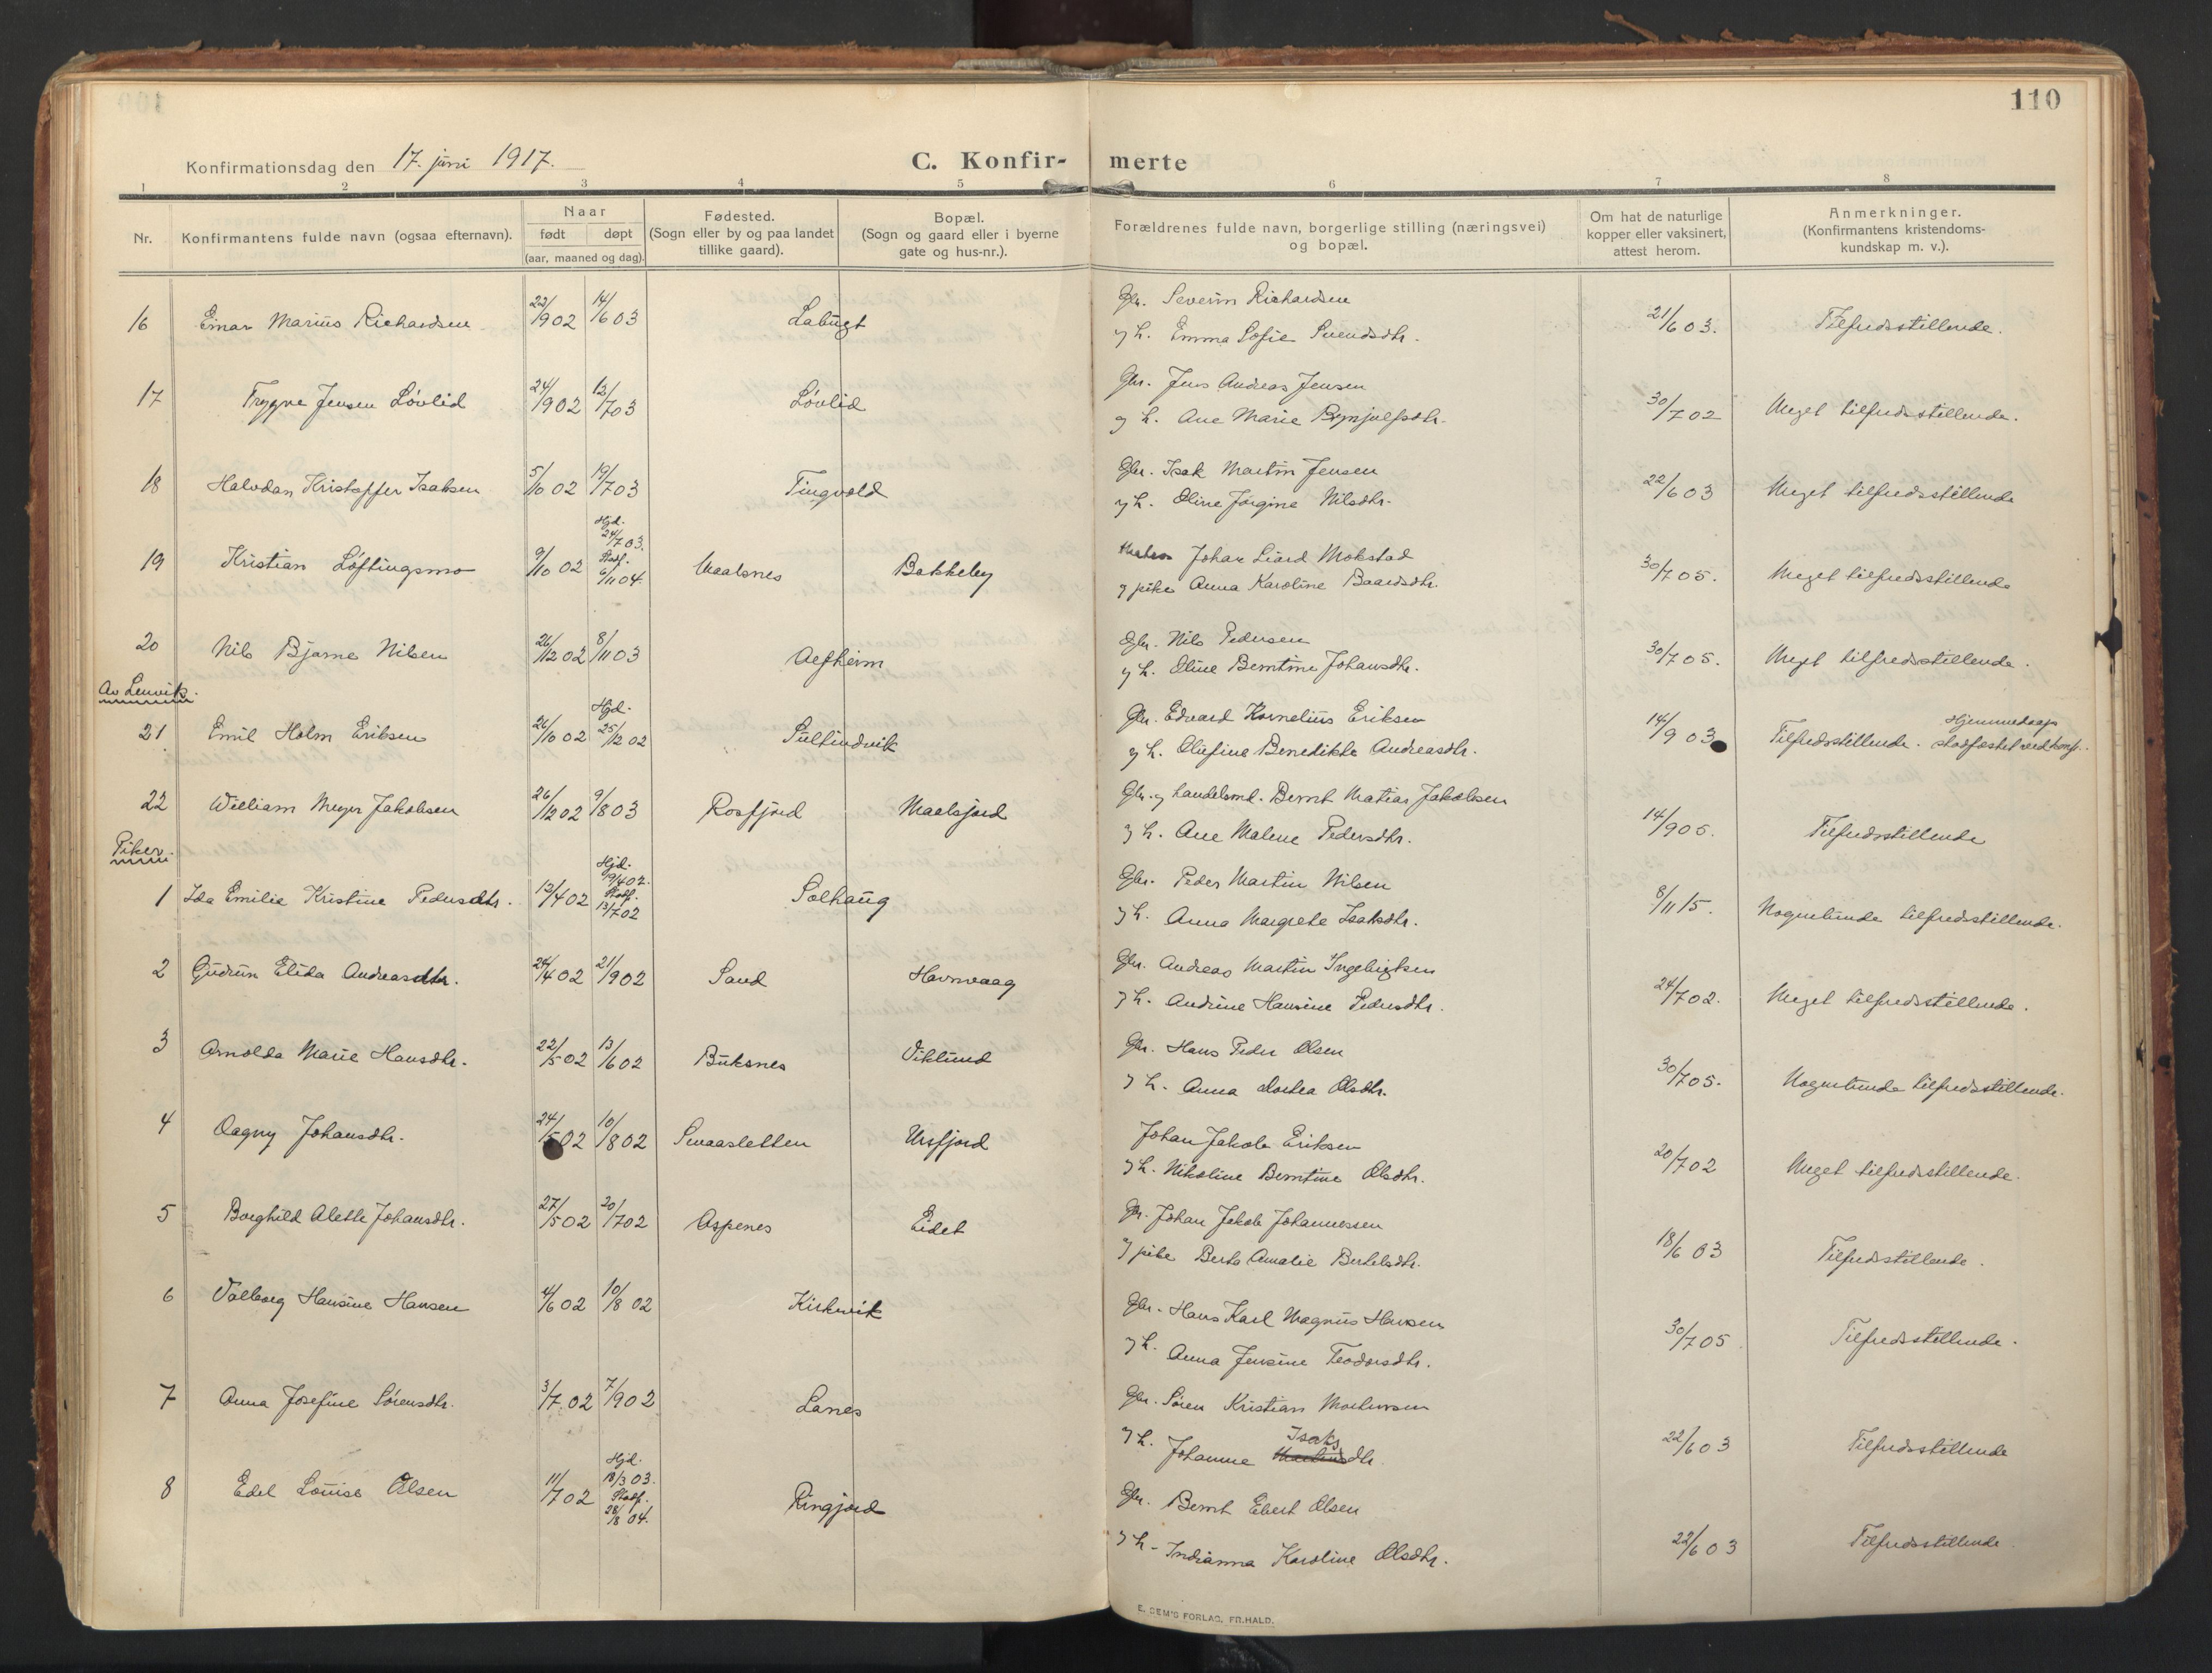 110
Konfirmationsdag den 17. juni 1917.
C. Konfir- merte
1 2 3 4 5 6 7 8
Nr.
Konfirmantens fulde navn (ogsaa efternavn).
Naar
født døpt
(aar, maaned og dag).
Fødested.
(Sogn eller by og paa landet
tillike gaard).
Bopæl.
(Sogn og gaard eller i byerne
gate og hus-nr.).
Forældrenes fulde navn, borgerlige stilling (næringsvei)
og bopæl.
Om hat de naturlige
kopper eller vaksinert,
attest herom.
Anmerkninger.
(Konfirmantens kristendoms-
kundskap m. v.).
16 Einar Marius Richardsen 22/9 02 14/6 03 Labugt Gbr. Severin Richardsen 21/6 03. Tilfredsstillende.
og h. Emma Sofie Svendsdtr.
17 Trygve Jensen Løvlid 24/9 02 12/7 03 Løvlid Gbr. Jens Andreas Jensen 30/7 02 Meget tilfredsstillende.
og h. Ane Marie Brynjulfsdtr.
18 Halvdan Kristoffer Isaksen 5/10 02 19/7 03 Tingvold Gbr. Isak Martin Jensen 22/6 03 Meget tilfredsstillende
og h. Oline Jørgine Nilsdtr.
19 Kristian Løftingsmo 9/10 02 Hjd. 24/7 03. Stadf. 6/11 04. Maalsnes Bakkeby Johan Liard Mokstad 30/7 05. Meget tilfredsstillende
og pike Anna Karoline Baardsdtr.
20 Nils Bjarne Nilsen 26/12 02 8/11 03 Alfheim Gbr. Nils Pedersen 30/7 05. Meget tilfredsstillende.
og h. Oline Berntine Johansdtr.
Av Lenvik.
21 Emil Holm Eriksen 26/10 02 Hjd. 25/12 02 Sultindvik Gbr. Edvard Kornelius Eriksen 14/9 03 Tilfredsstillende. Hjemmedaap stadfæstet ved konf.
og h. Olufine Benedikte Andreasdtr.
22 William Meyer Jakobsen 26/12 02 9/8 03 Rosfjord Maalsjord Gbr. og handelsmd. Bernt Matias Jakobsen 14/9 05. Tilfredsstillende
og h. Ane Malene Pedersdtr.
Piker.
1 Ida Emilie Kristine Pedersdtr. 12/4 02 Hjd. 19/4 02. Stadf. 13/7 02 Solhaug Gbr. Peder Martin Nilsen 8/11 15. Nogenlunde tilfredsstillende.
og h. Anna Margrete Isaksdtr.
2 Gudrun Elida Andreasdtr. 24/4 02 21/9 02 Sand Havnvaag Gbr. Andreas Martin Ingebrigtsen 24/7 02. Meget tilfredsstillende.
og h. Andrine Hansine Pedersdtr.
3 Arnolda Marie Hansdtr. 22/5 02 13/6 02 Buksnes Viklund Gbr. Hans Peder Olsen 30/7 05. Nogenlunde tilfredsstillende.
og h. Anna Dortea Olsdtr.
4 Dagny Johansdtr. 24/5 02 10/8 02 Smaasletten Ursfjord Johan Jakob Eriksen 20/7 02 Meget tilfredsstillende.
og h. Nikoline Berntine Olsdtr.
5 Borghild Alette Johansdtr. 27/5 02 20/7 02 Aspenes Eidet Gbr. Johan Jakob Johannessen 18/6 03 Tilfredsstillende.
og pike Berte Amalie Bertelsdtr.
6 Valborg Hansine Hansen 4/6 02 10/8 02 Kirkevik Gbr. Hans Karl Magnus Hansen 30/7 05 Tilfredsstillende.
og h. Anna Jensine Teodorsdtr.
7 Anna Josefine Sørensdtr. 3/7 02 7/9 02 Lanes Gbr. Søren Kristian Mortensen 22/6 03 Tilfredsstillende
og h. Johanne Isaksdtr.
8 Edel Louise Olsen 11/7 02 Hjd. 18/3 03. Stadf. 28/8 04. Ringjord Gbr. Bernt Ebert Olsen 22/6 03 Tilfredsstillende
og h. Indianna Karoline Olsdtr.
E. SEM'S FORLAG, FR.HALD.